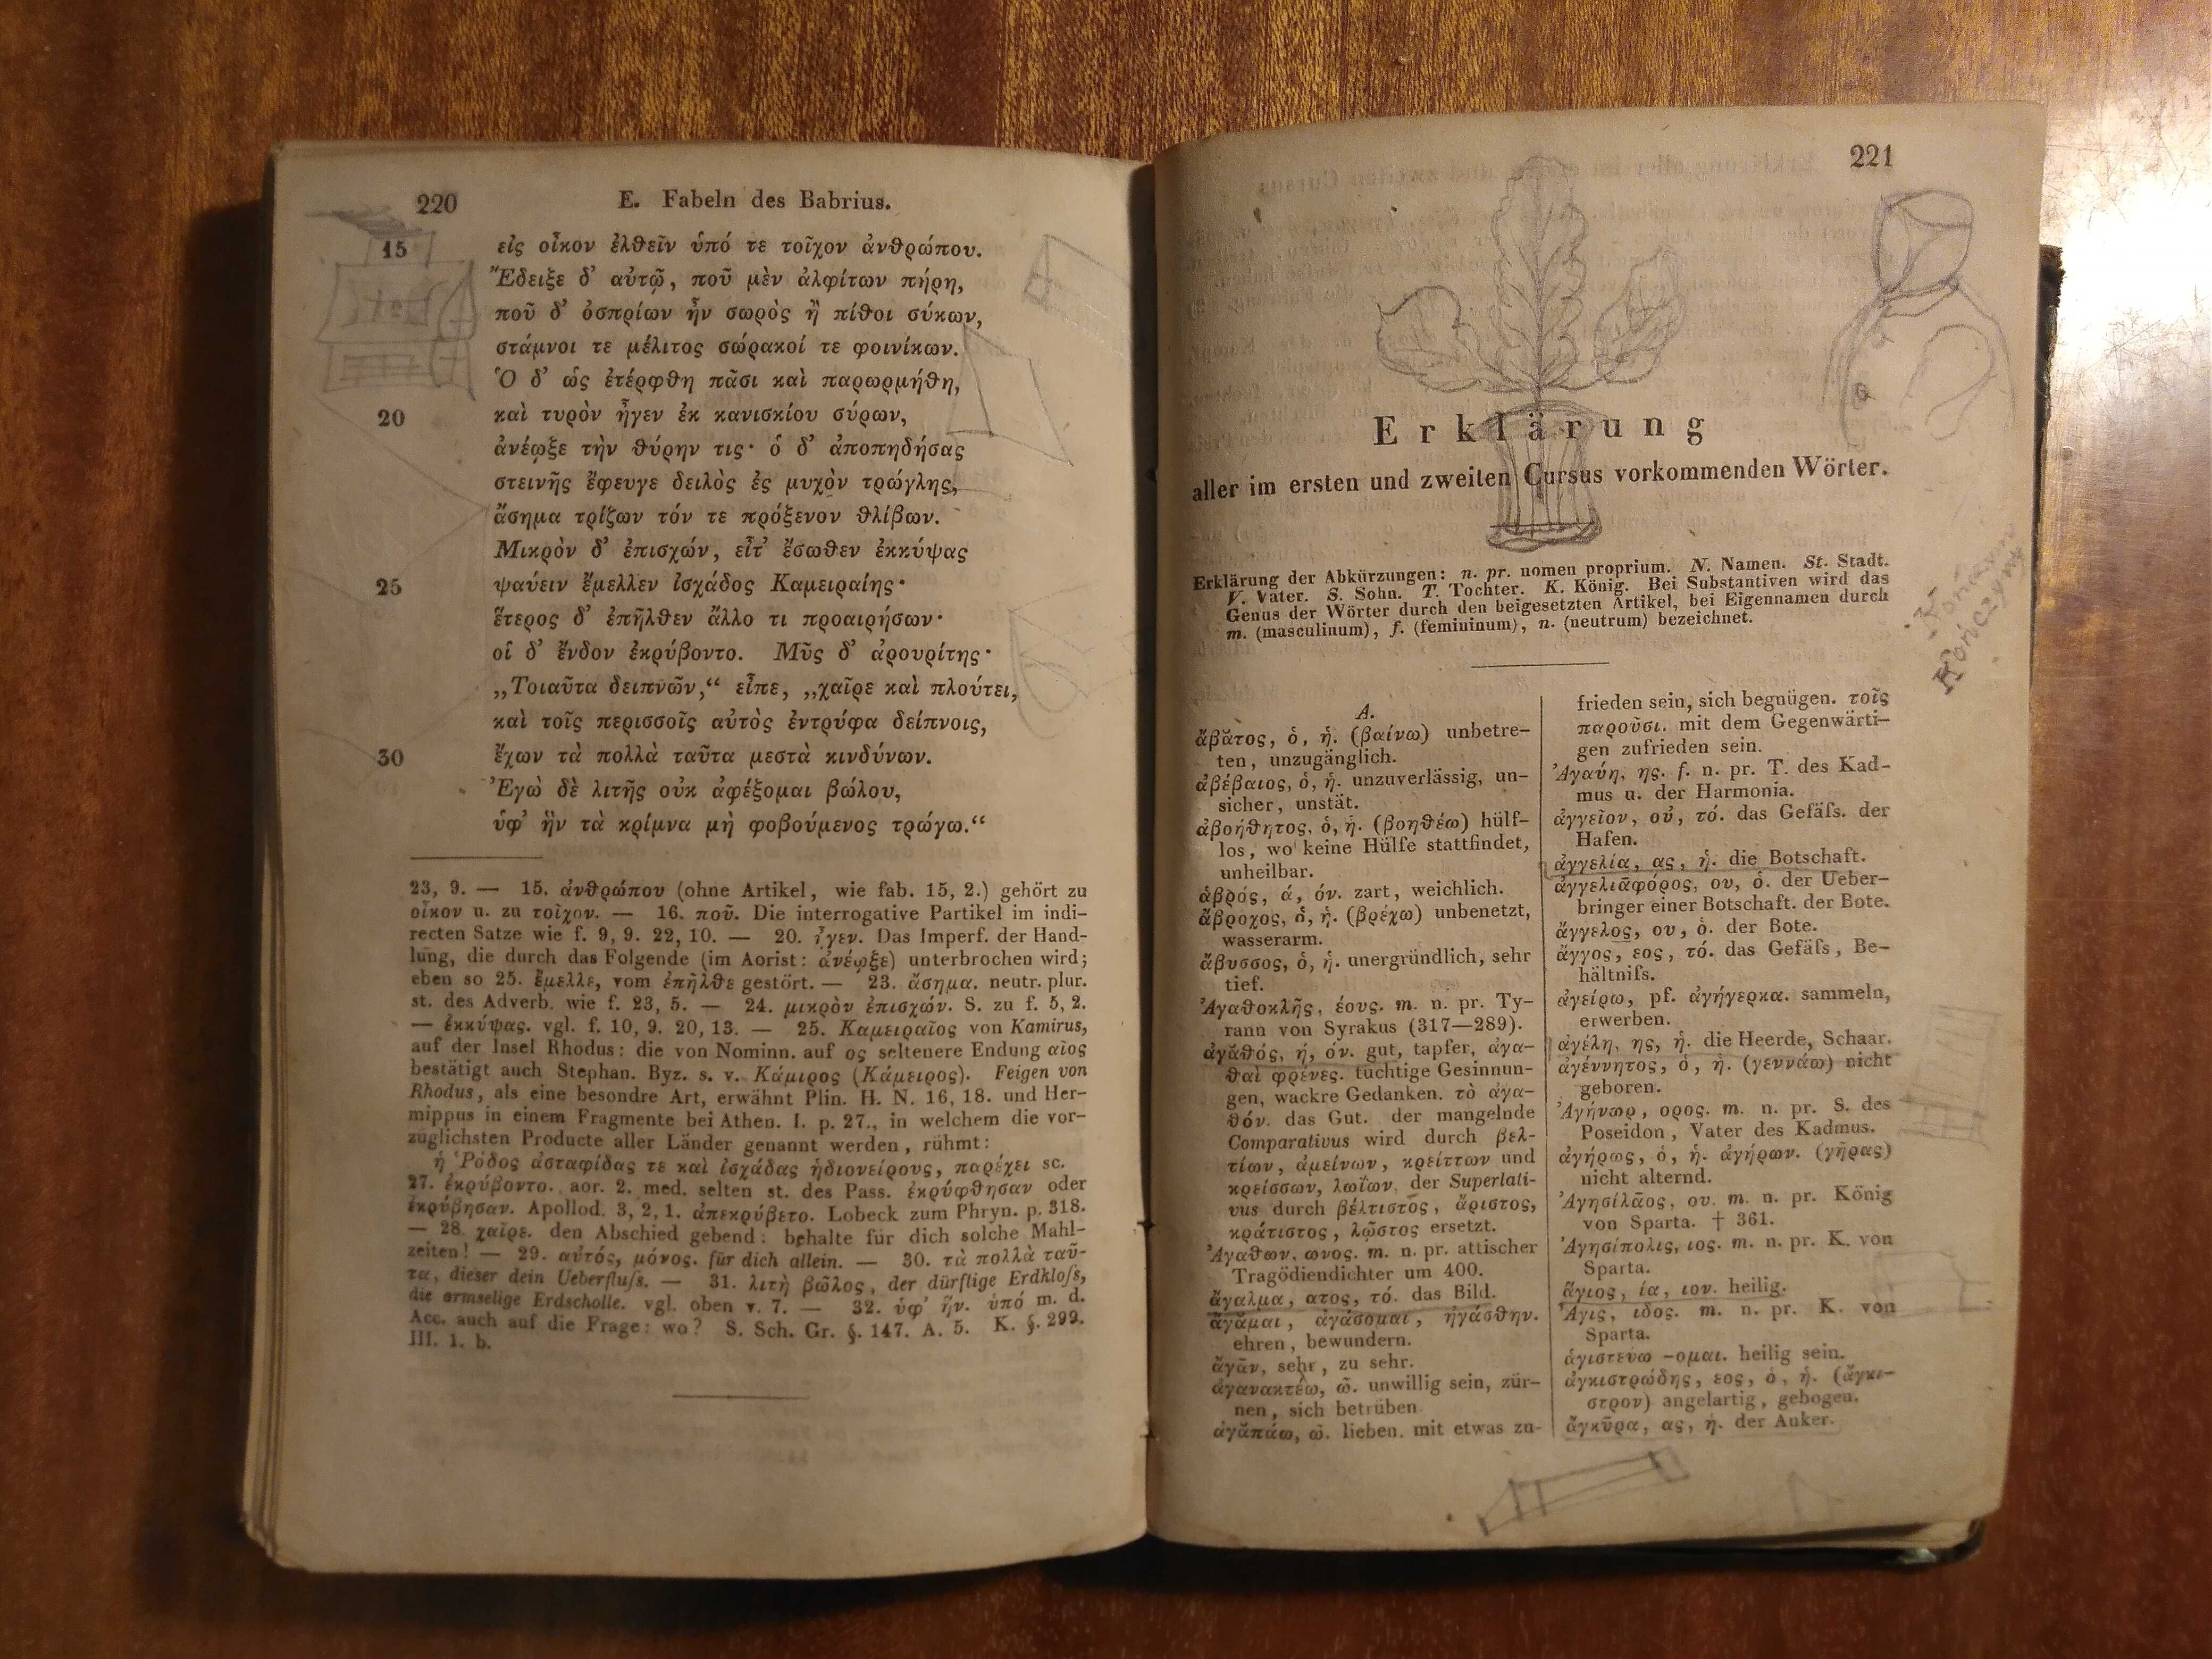 220
E. Fabeln des Babrius.
15 εἰς οἶκον ἐλθεῖν ὑπό τε τοῖχον ἀνθρώπου.
Ἔδειξε δ’ αὐτῷ, ποῦ μὲν ἀλφίτων πήρη,
ποῦ δ’ ὀσπρίων ἦν σωρὸς ἢ πίθοι σύκων,
στάμνοι τε μέλιτος σώρακοί τε φοινίκων.
Ὁ δ’ ὡς ἐτέρφθη πᾶσι καὶ παρωρμήθη,
20 καὶ τυρὸν ἦγεν ἐκ κανισκίου σύρων,
ἀνέῳξε τὴν θύρην τις· ὁ δ’ ἀποπηδήσας
στεινῆς ἔφευγε δειλὸς ἐς μυχὸν τρώγλης,
ἄσημα τρίζων τόν τε πρόξενον θλίβων.
Μικρὸν δ’ ἐπισχών, εἶτ’ ἔσωθεν ἐκκύψας
25 ψαύειν ἔμελλεν ἰσχάδος Καμειραίης·
ἕτερος δ’ ἐπῆλθεν ἄλλο τι προαιρήσων·
οἱ δ’ ἔνδον ἐκρύβοντο. Μῦς δ’ ἀρουρίτης·
„Τοιαῦτα δειπνῶν,“ εἶπε, „χαῖρε καὶ πλούτει,
καὶ τοῖς περισσοῖς αὐτὸς ἐντρύφα δείπνοις,
30 ἔχων τὰ πολλὰ ταῦτα μεστὰ κινδύνων.
Ἐγὼ δὲ λιτῆς οὐκ ἀφέξομαι βώλου,
ὑφ’ ἣν τὰ κρίμνα μὴ φοβούμενος τρώγω.“
23, 9. — 15. ἀνθρώπου (ohne Artikel, wie fab. 15, 2.) gehört zu
οἶκον u. zu τοῖχον. — 16. ποῦ. Die interrogative Partikel im indi-
recten Satze wie f. 9, 9. 22, 10. — 20. ἦγεν. Das Imperf. der Hand-
lung, die durch das Folgende (im Aorist: ἀνέῳξε) unterbrochen wird;
eben so 25. ἔμελλε, vom ἐπῆλθε gestört. — 23. ἄσημα. neutr. plur.
st. des Adverb. wie f. 23, 5. — 24. μικρὸν ἐπισχών. S. zu f. 5, 2.
— ἐκκύψας. vgl. f. 10, 9. 20, 13. — 25. Καμειραῖος von Kamirus,
auf der Insel Rhodus: die von Nominn. auf ος seltenere Endung αῖος
bestätigt auch Stephan. Byz. s. v. Κάμιρος (Κάμειρος). Feigen von
Rhodus, als eine besondre Art, erwähnt Plin. H. N. 16, 18. und Her-
mippus in einem Fragmente bei Athen. I. p. 27., in welchem die vor-
züglichsten Producte aller Länder genannt werden, rühmt:
ἡ Ῥόδος ἀσταφίδας τε καὶ ἰσχάδας ἡδιονείρους, παρέχει sc.
27. ἐκρύβοντο. aor. 2. med. selten st. des Pass. ἐκρύφθησαν oder
ἐκρύβησαν. Apollod. 3, 2, 1. ἀπεκρύβετο. Lobeck zum Phryn. p. 318.
— 28. χαῖρε. den Abschied gebend: behalte für dich solche Mahl-
zeiten! — 29. αὐτός, μόνος. für dich allein. — 30. τὰ πολλὰ ταῦ-
τα, dieser dein Ueberfluſs. — 31. λιτὴ βῶλος, der dürftige Erdkloſs,
die armselige Erdscholle. vgl. oben v. 7. — 32. ὑφ’ ἥν. ὑπό m. d.
Acc. auch auf die Frage: wo? S. Sch. Gr. §. 147. A. 5. K. §. 299.
III. 1. b.
221
Erklärung
aller im ersten und zweiten Cursus vorkommenden Wörter.
Erklärung der Abkürzungen: n. pr. nomen proprium. N. Namen. St. Stadt.
V. Vater. S. Sohn. T. Tochter. K. König. Bei Substantiven wird das
Genus der Wörter durch den beigesetzten Artikel, bei Eigennamen durch
m. (masculinum), f. (femininum), n. (neutrum) bezeichnet.
A.
ἄβᾰτος, ὁ, ἡ. (βαίνω) unbetre-
ten, unzugänglich.
ἀβέβαιος, ὁ, ἡ. unzuverlässig, un-
sicher, unstät.
ἀβοήθητος, ὁ, ἡ. (βοηθέω) hülf-
los, wo keine Hülfe stattfindet,
unheilbar.
ἁβρός, ά, όν. zart, weichlich.
ἄβροχος, ὁ, ἡ. (βρέχω) unbenetzt,
wasserarm.
ἄβυσσος, ὁ, ἡ. unergründlich, sehr
tief.
Ἀγαθοκλῆς, έους. m. n. pr. Ty-
rann von Syrakus (317—289).
ἀγᾰθός, ή, όν. gut, tapfer, ἀγα-
θαὶ φρένες. tüchtige Gesinnun-
gen, wackre Gedanken. τὸ ἀγα-
θόν. das Gut. der mangelnde
Comparativus wird durch βελ-
τίων, ἀμείνων, κρείττων und
κρείσσων, λωΐων, der Superlati-
vus durch βέλτιστος, ἄριστος,
κράτιστος, λῷστος ersetzt.
Ἀγαθων, ωνος. m. n. pr. attischer
Tragödiendichter um 400.
ἄγαλμα, ατος, τό. das Bild.
ἄγᾰμαι, ἀγάσομαι, ἠγάσθην.
ehren, bewundern.
ἄγᾱν, sehr, zu sehr.
ἀγανακτέω, ῶ. unwillig sein, zür-
nen, sich betrüben
ἀγᾰπάω, ῶ. lieben. mit etwas zu-
frieden sein, sich begnügen. τοῖς
παροῦσι. mit dem Gegenwärti-
gen zufrieden sein.
Ἀγαύη, ης. f. n. pr. T. des Kad-
mus u. der Harmonia.
ἀγγεῖον, οὐ, τό. das Gefäſs. der
Hafen.
ἀγγελία, ας, ἡ. die Botschaft.
ἀγγελιᾱφόρος, ου, ὁ. der Ueber-
bringer einer Botschaft. der Bote.
ἄγγελος, ου, ὁ. der Bote.
ἄγγος, εος, τό. das Gefäſs, Be-
hältniſs.
ἀγείρω, pf. ἀγήγερκα. sammeln,
erwerben.
ἀγέλη, ης, ἡ. die Heerde, Schaar.
ἀγέννητος, ὁ, ἡ. (γεννάω) nicht
geboren.
Ἀγήνωρ, ορος. m. n. pr. S. des
Poseidon, Vater des Kadmus.
ἀγήρως, ὁ, ἡ. ἀγήρων. (γῆρας)
nicht alternd.
Ἀγησίλᾱος, ου. m. n. pr. König
von Sparta. † 361.
Ἀγησίπολις, ιος. m. n. pr. K. von
Sparta.
ἅγιος, ία, ιον. heilig.
Ἆγις, ιδος. m. n. pr. K. von
Sparta.
ἁγιστευω -ομαι. heilig sein.
ἀγκιστρώδης, εος, ὁ, ἡ. (ἄγκι-
στρον) angelartig, gebogen.
ἄγκῡρα, ας, ἡ. der Anker.